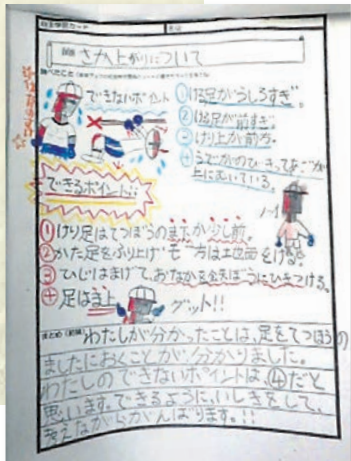 自主学習カード
課題 さか上がりについて
調べたこと
できないポイント
①ける足がうしろすぎ。
②ける足が前すぎ。
③けり上が前方。
④うでがのびきってあごが
上にむいている。
できるポイント!!
①けり足はてつぼうの真下か少し前。
②かた足をふり上げもう一方は地面をける。
③ひじはまげて、おなかを鉄ぼうにひきつける。
④足はま上
グット!!
まとめ
わたしが分かったことは、足をてつぼうの
ましたにおくことが、分かりました。
わたしのできないポイントは、④だと
思います。できるように、いしきをして、
考えながらがんばります。!!